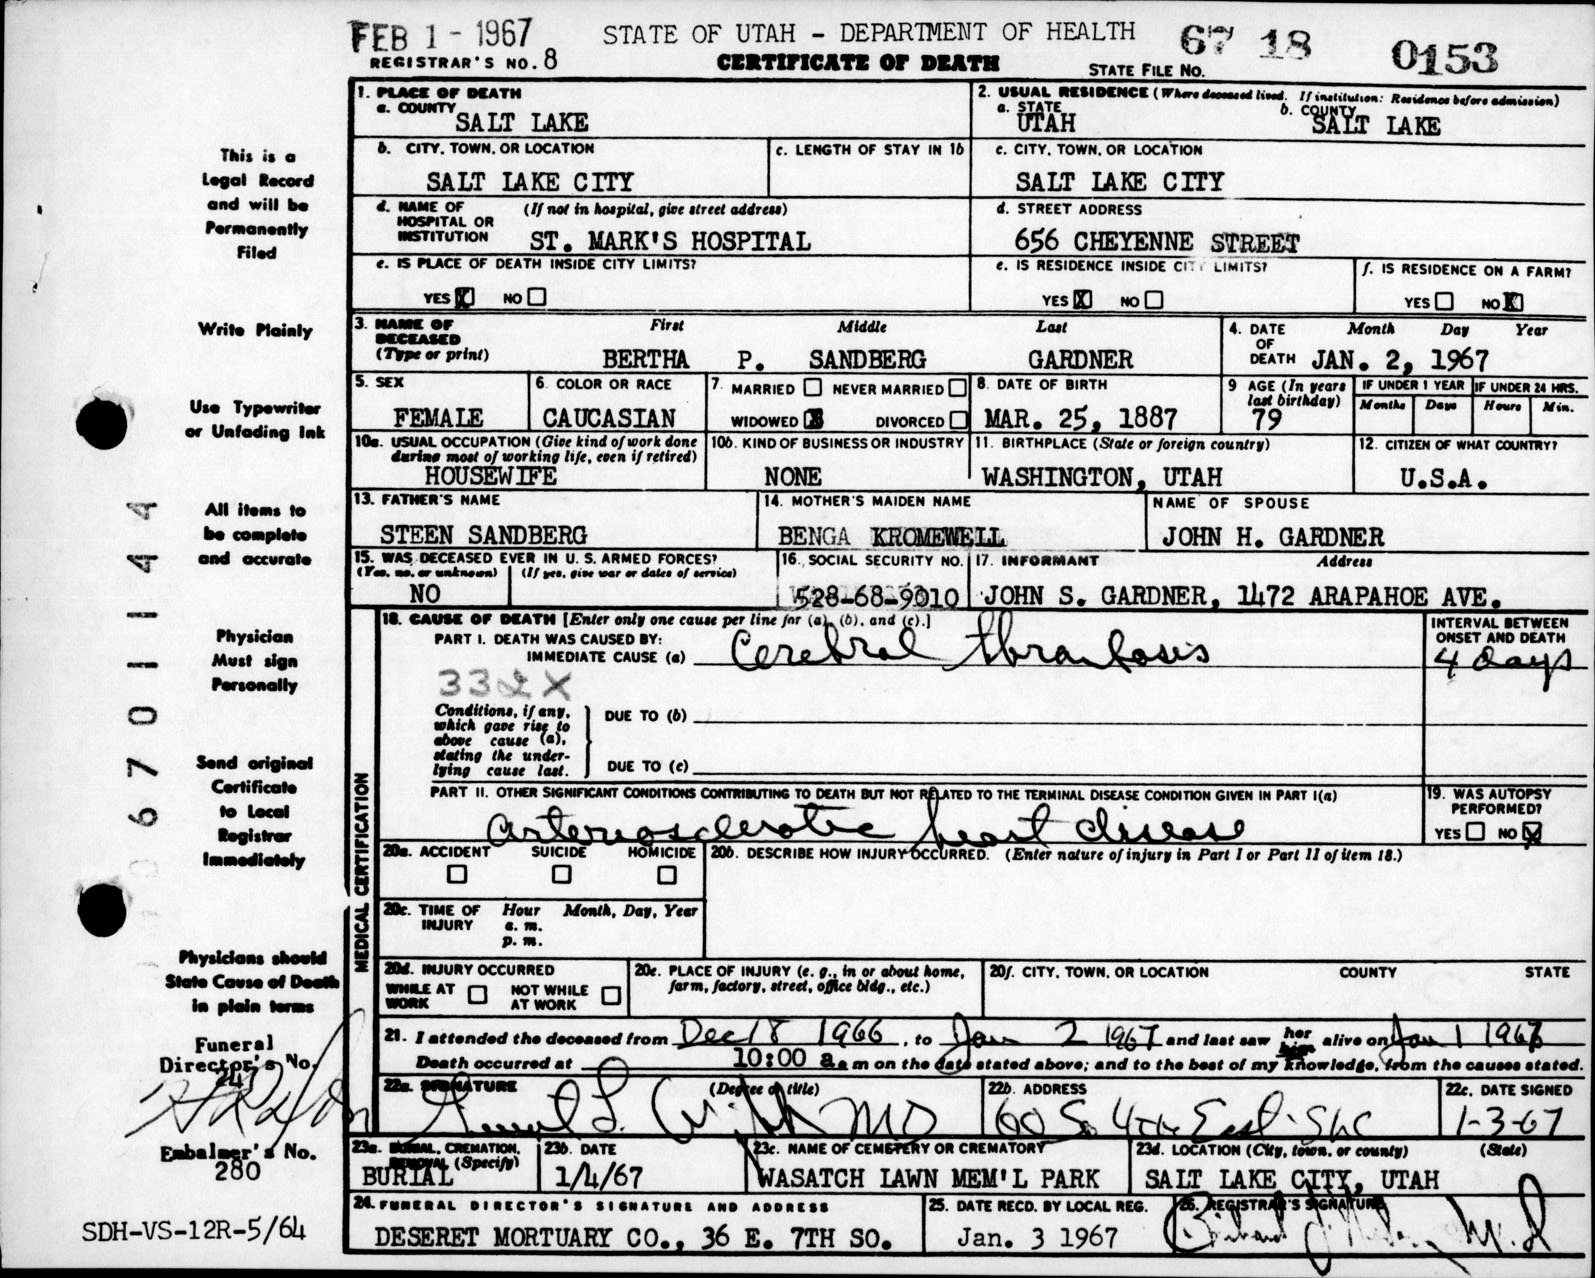 FEB 1 - 1967 STATE OF UTAH - DEPARTMENT OF HEALTH 67 18 0153
REGISTRAR'S NO. 8 CERTIFICATE OF DEATH STATE FILE NO.
This is a
Legal Record
and will be
Permanently
Filed
Write Plainly
Use Typewriter
or Unfading Ink
All items to
be complete
and accurate
Physician
Must sign
Personally
Send original
Certificate
to Local
Registrar
Immediately
Physicians should
State Cause of Death
in plain terms
Funeral
Director's No.
24
Embalmer's No.
280
SDH-VS-12R-5/64
67011144
1. PLACE OF DEATH
a. COUNTY
SALT LAKE
2. USUAL RESIDENCE (Where deceased lived. If institution: Residence before admission)
a. STATE b. COUNTY
UTAH SALT LAKE
b. CITY, TOWN, OR LOCATION c. LENGTH OF STAY IN 1b
SALT LAKE CITY
c. CITY, TOWN, OR LOCATION
SALT LAKE CITY
d. NAME OF HOSPITAL OR INSTITUTION (If not in hospital, give street address)
ST. MARK'S HOSPITAL
d. STREET ADDRESS
656 CHEYENNE STREET
e. IS PLACE OF DEATH INSIDE CITY LIMITS?
YES X NO
e. IS RESIDENCE INSIDE CITY LIMITS?
YES X NO
f. IS RESIDENCE ON A FARM?
YES NO X
3. NAME OF DECEASED (Type or print) First Middle Last
BERTHA P. SANDBERG GARDNER
4. DATE OF DEATH Month Day Year
JAN. 2, 1967
5. SEX
FEMALE
6. COLOR OR RACE
CAUCASIAN
7. MARRIED NEVER MARRIED
WIDOWED X DIVORCED
8. DATE OF BIRTH
MAR. 25, 1887
9 AGE (In years last birthday)
79
IF UNDER 1 YEAR IF UNDER 24 HRS.
Months Days Hours Min.
10a. USUAL OCCUPATION (Give kind of work done
during most of working life, even if retired)
HOUSEWIFE
10b. KIND OF BUSINESS OR INDUSTRY
NONE
11. BIRTHPLACE (State or foreign country)
WASHINGTON, UTAH
12. CITIZEN OF WHAT COUNTRY?
U.S.A.
13. FATHER'S NAME
STEEN SANDBERG
14. MOTHER'S MAIDEN NAME
BENGA KROMEWELL
NAME OF SPOUSE
JOHN H. GARDNER
15. WAS DECEASED EVER IN U. S. ARMED FORCES?
(Yes, no, or unknown) (If yes, give war or dates of service)
NO
16. SOCIAL SECURITY NO.
528-68-9010
17. INFORMANT Address
JOHN S. GARDNER, 1472 ARAPAHOE AVE.
MEDICAL CERTIFICATION
18. CAUSE OF DEATH [Enter only one cause per line for (a), (b), and (c).]
PART I. DEATH WAS CAUSED BY:
IMMEDIATE CAUSE (a) Cerebral thrombosis
INTERVAL BETWEEN
ONSET AND DEATH
4 days
332X
Conditions, if any,
which gave rise to
above cause (a),
stating the under-
lying cause last.
DUE TO (b)
DUE TO (c)
PART II. OTHER SIGNIFICANT CONDITIONS CONTRIBUTING TO DEATH BUT NOT RELATED TO THE TERMINAL DISEASE CONDITION GIVEN IN PART I(a)
arteriosclerotic heart disease
19. WAS AUTOPSY
PERFORMED?
YES NO X
20a. ACCIDENT SUICIDE HOMICIDE
20b. DESCRIBE HOW INJURY OCCURRED. (Enter nature of injury in Part I or Part II of item 18.)
20c. TIME OF INJURY Hour Month, Day, Year
a. m.
p. m.
20d. INJURY OCCURRED
WHILE AT WORK NOT WHILE AT WORK
20e. PLACE OF INJURY (e. g., in or about home,
farm, factory, street, office bldg., etc.)
20f. CITY, TOWN, OR LOCATION COUNTY STATE
21. I attended the deceased from Dec 18 1966, to Jan 2 1967 and last saw her him alive on Jan 1 1967
Death occurred at 10:00 a.m on the date stated above; and to the best of my knowledge, from the causes stated.
22a. SIGNATURE (Degree or title)
L. MD
22b. ADDRESS
60 So 4th East SLC
22c. DATE SIGNED
1-3-67
23a. BURIAL, CREMATION,
REMOVAL (Specify)
BURIAL
23b. DATE
1/4/67
23c. NAME OF CEMETERY OR CREMATORY
WASATCH LAWN MEM'L PARK
23d. LOCATION (City, town, or county) (State)
SALT LAKE CITY, UTAH
24. FUNERAL DIRECTOR'S SIGNATURE AND ADDRESS
DESERET MORTUARY CO., 36 E. 7TH SO.
25. DATE RECD. BY LOCAL REG.
Jan. 3 1967
26. REGISTRAR'S SIGNATURE
M.D